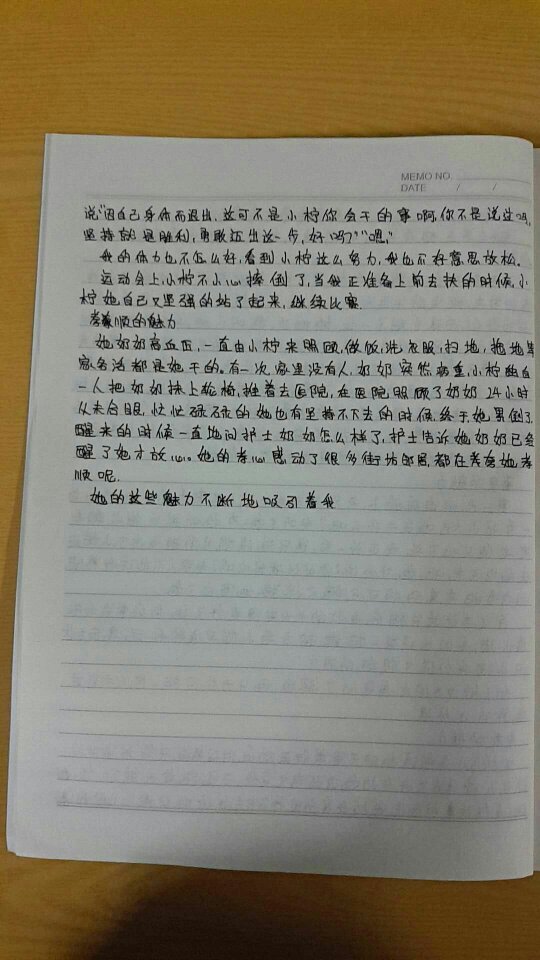 MEMO NO.
DATE / /
说"因自己身体而退出,这可不是小柠你会干的事啊,你不是说过吗,
坚持就是胜利,勇敢迈出这一步,好吗?""嗯,"
我的体力也不怎么好,看到小柠这么努力,我也不好意思放松。
运动会上,小柠不小心摔倒了,当我正准备上前去扶的时候,小
柠她自己又坚强的站了起来,继续比赛.
孝顺的魅力
她奶奶高血压,一直由小柠来照顾,做饭,洗衣服,扫地,拖地等
家务活都是她干的。有一次,家里没有人,奶奶突然病重,小柠独自
一人把奶奶抹上轮椅,推着去医院,在医院照顾了奶奶24小时
从未合眼,忙忙碌碌的她也有坚持不下去的时候.终于她累倒了,
醒来的时候一直地问护士奶奶怎么样了,护士告诉她奶奶已经
醒了她才放心。她的孝心感动了很多街坊邻居,都在夸奖她孝
顺呢.
她的这些魅力不断地吸引着我